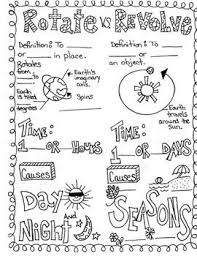 Rotate vs Revolve
Definition: To
___ or ___ in place.
Rotates
from
___ to ___
Earth's
imaginary
axis.
Spins
Earth
is tilted
degrees
Definition: To
___ or ___
an object.
Earth
travels
around the
sun.
TIME:
1 ___ OR ___ HOURS
TIME:
1 ___ OR ___ DAYS
Causes
Day
And
Night
Causes
SEASONS